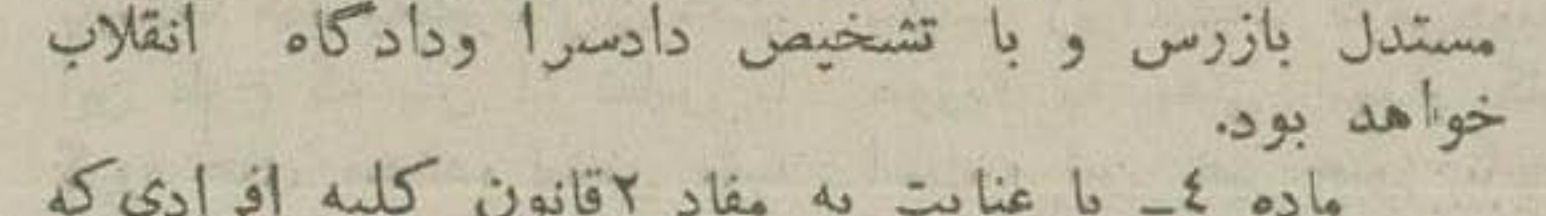 مستدل بازرس و با تشخیص دادسرا ودادگاه انقلاب
خواهد بود.
ماده ٤ـ با عنایت به مفاد ٢قانون کلیه افرادی که